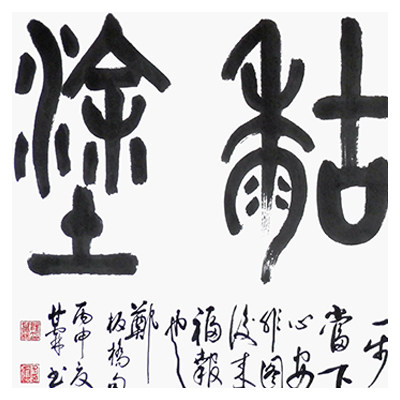 糊塗
一步
當下
心安
非圖
後來
福報
也
鄭
板橋句
丙申夏
書